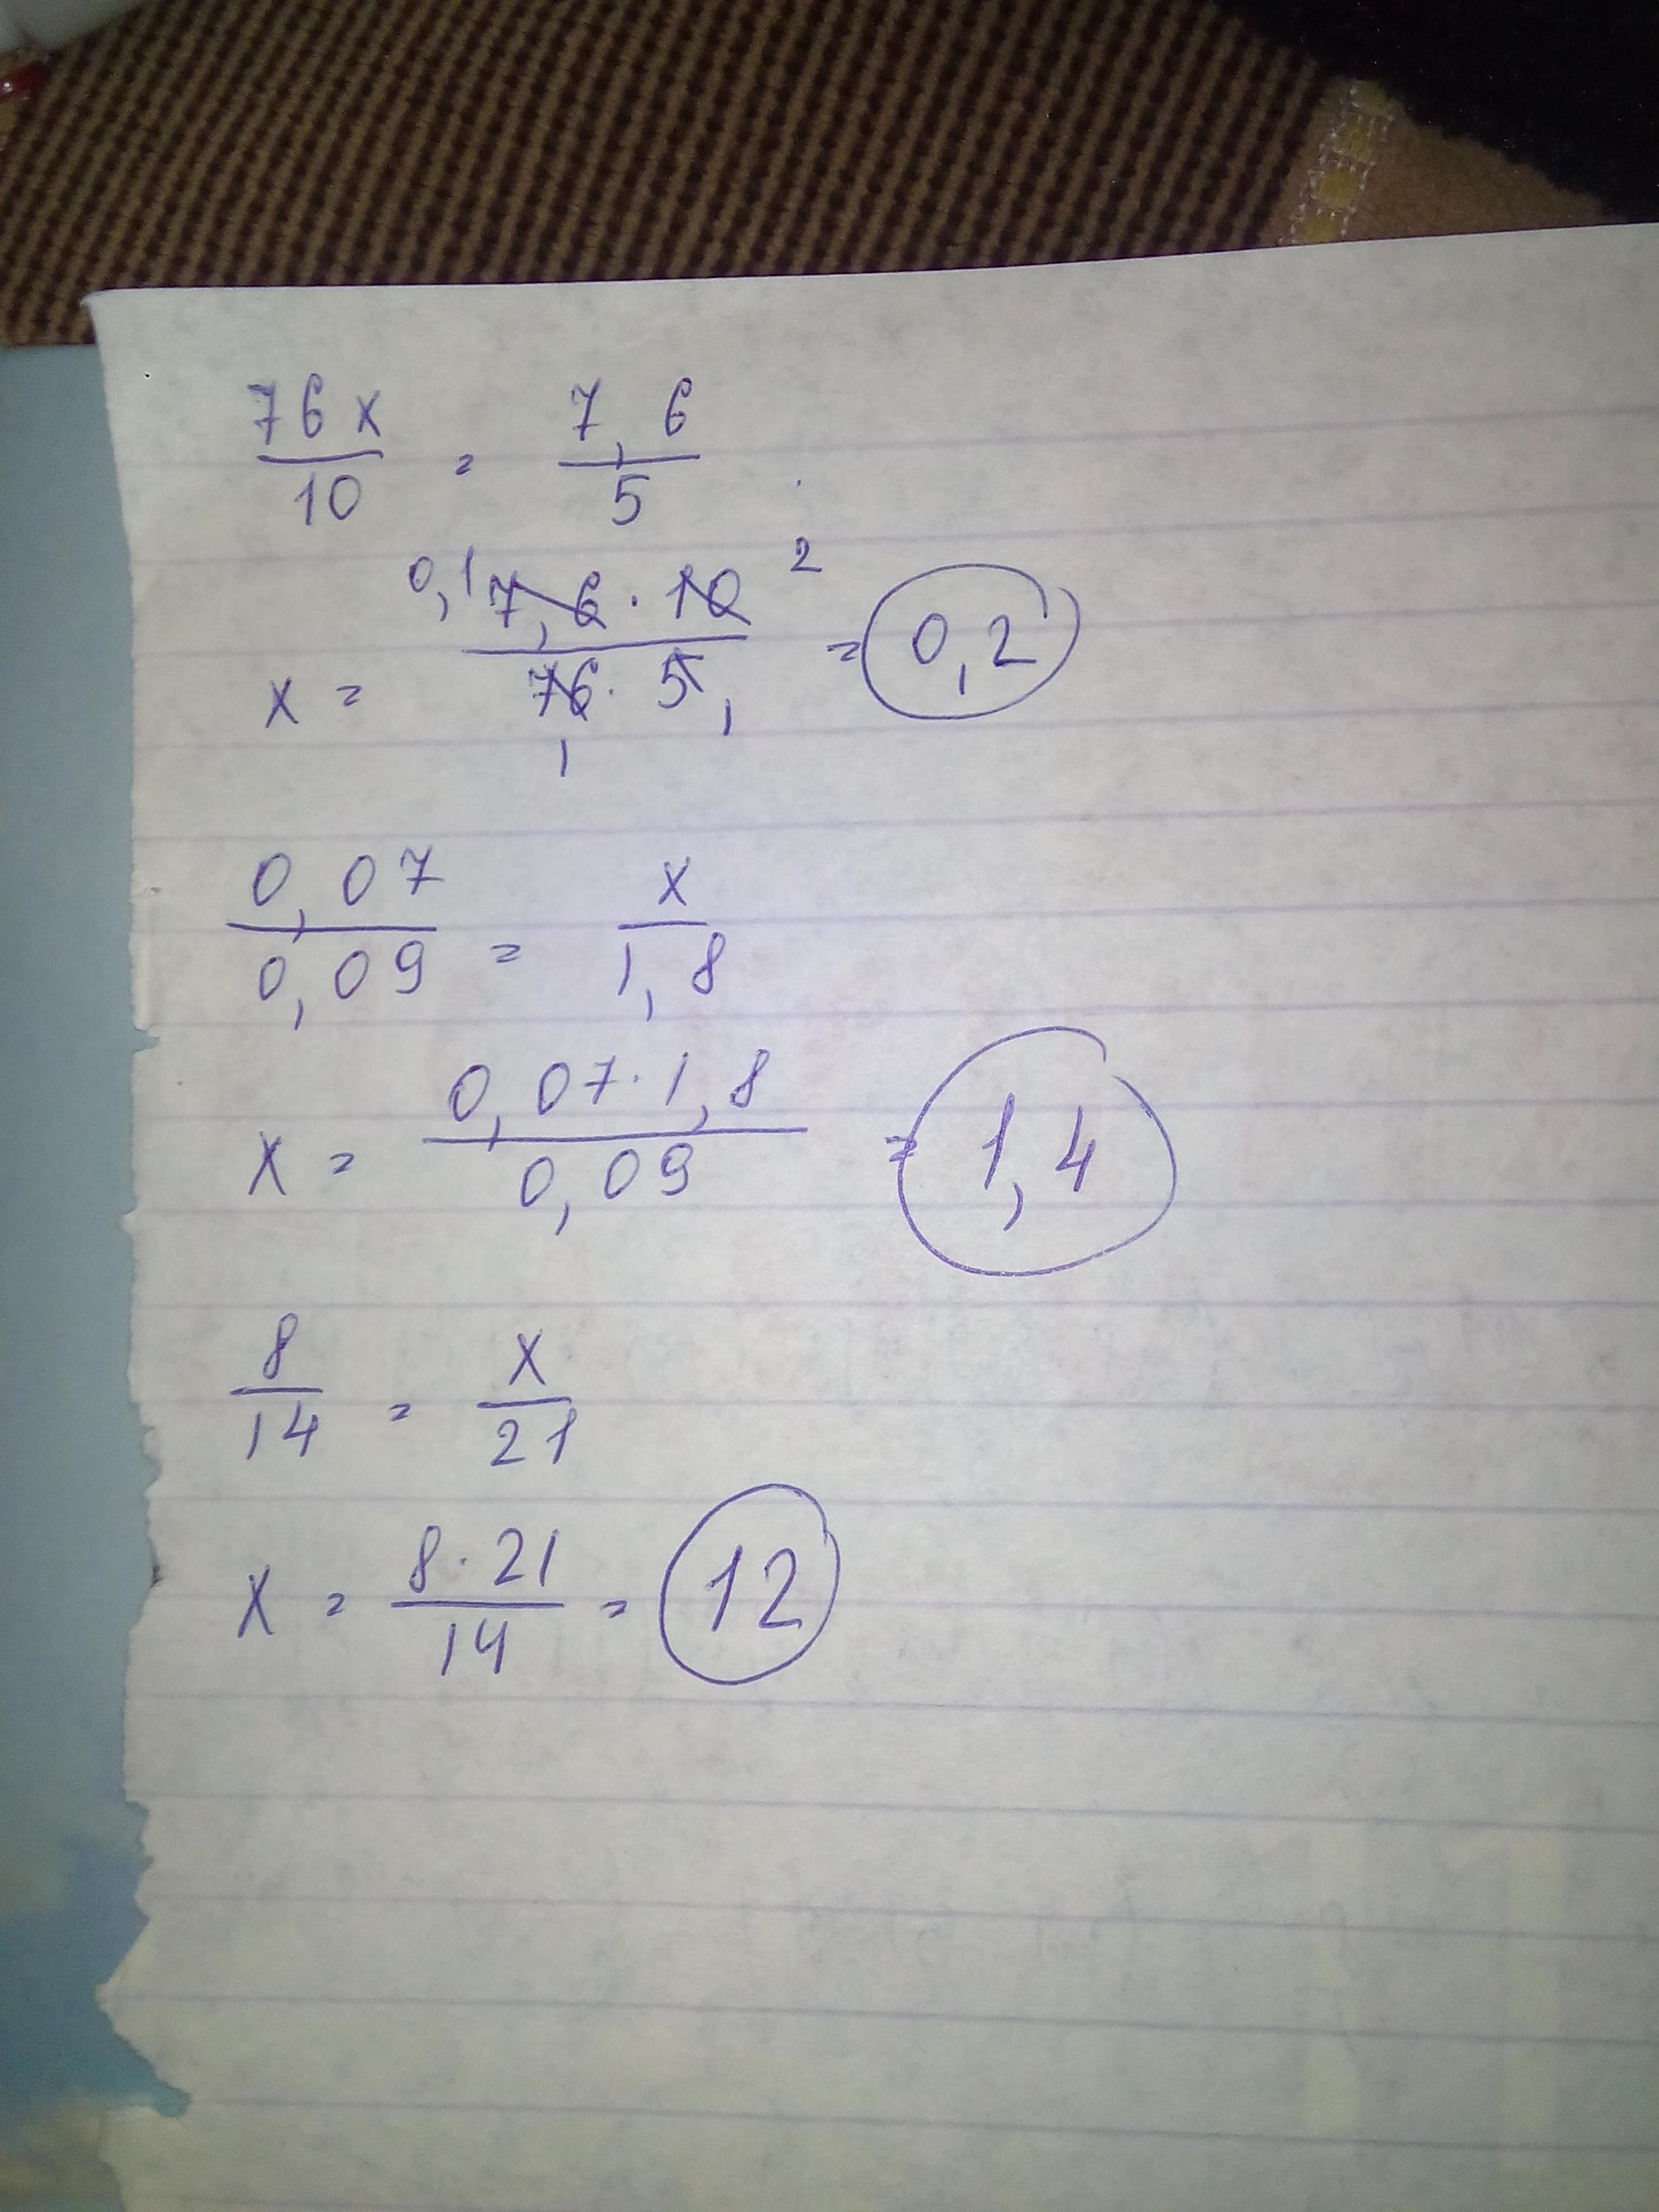 76x/10 = 7,6/5
x = 0,1 7,6 · 10 2 / 76 · 5 1 1 = 0,2
0,07/0,09 = x/1,8
x = 0,07 · 1,8 / 0,09 = 1,4
8/14 = x/21
x = 8 · 21 / 14 = 12